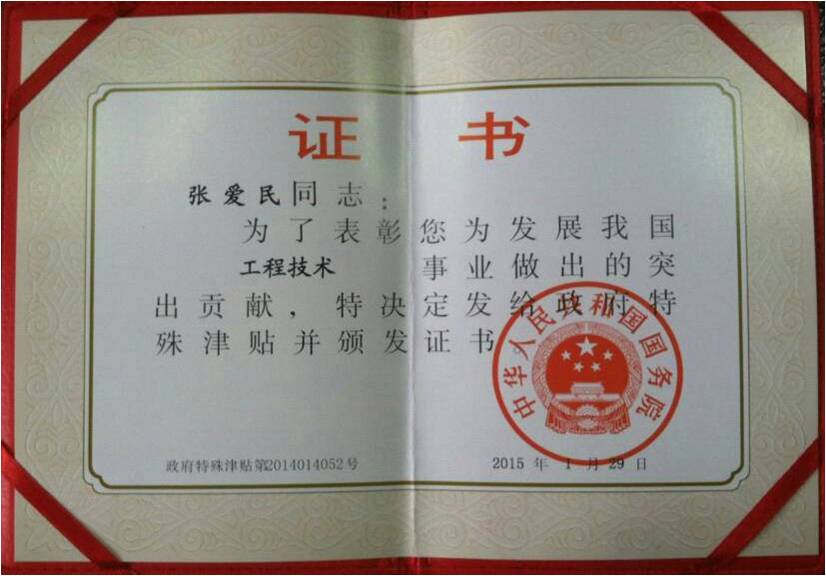 证书
张爱民同志：
为了表彰您为发展我国
工程技术 事业做出的突
出贡献，特决定发给政府特
殊津贴并颁发证书。
中华人民共和国国务院
政府特殊津贴第2014014052号
2015 年 1 月 29 日